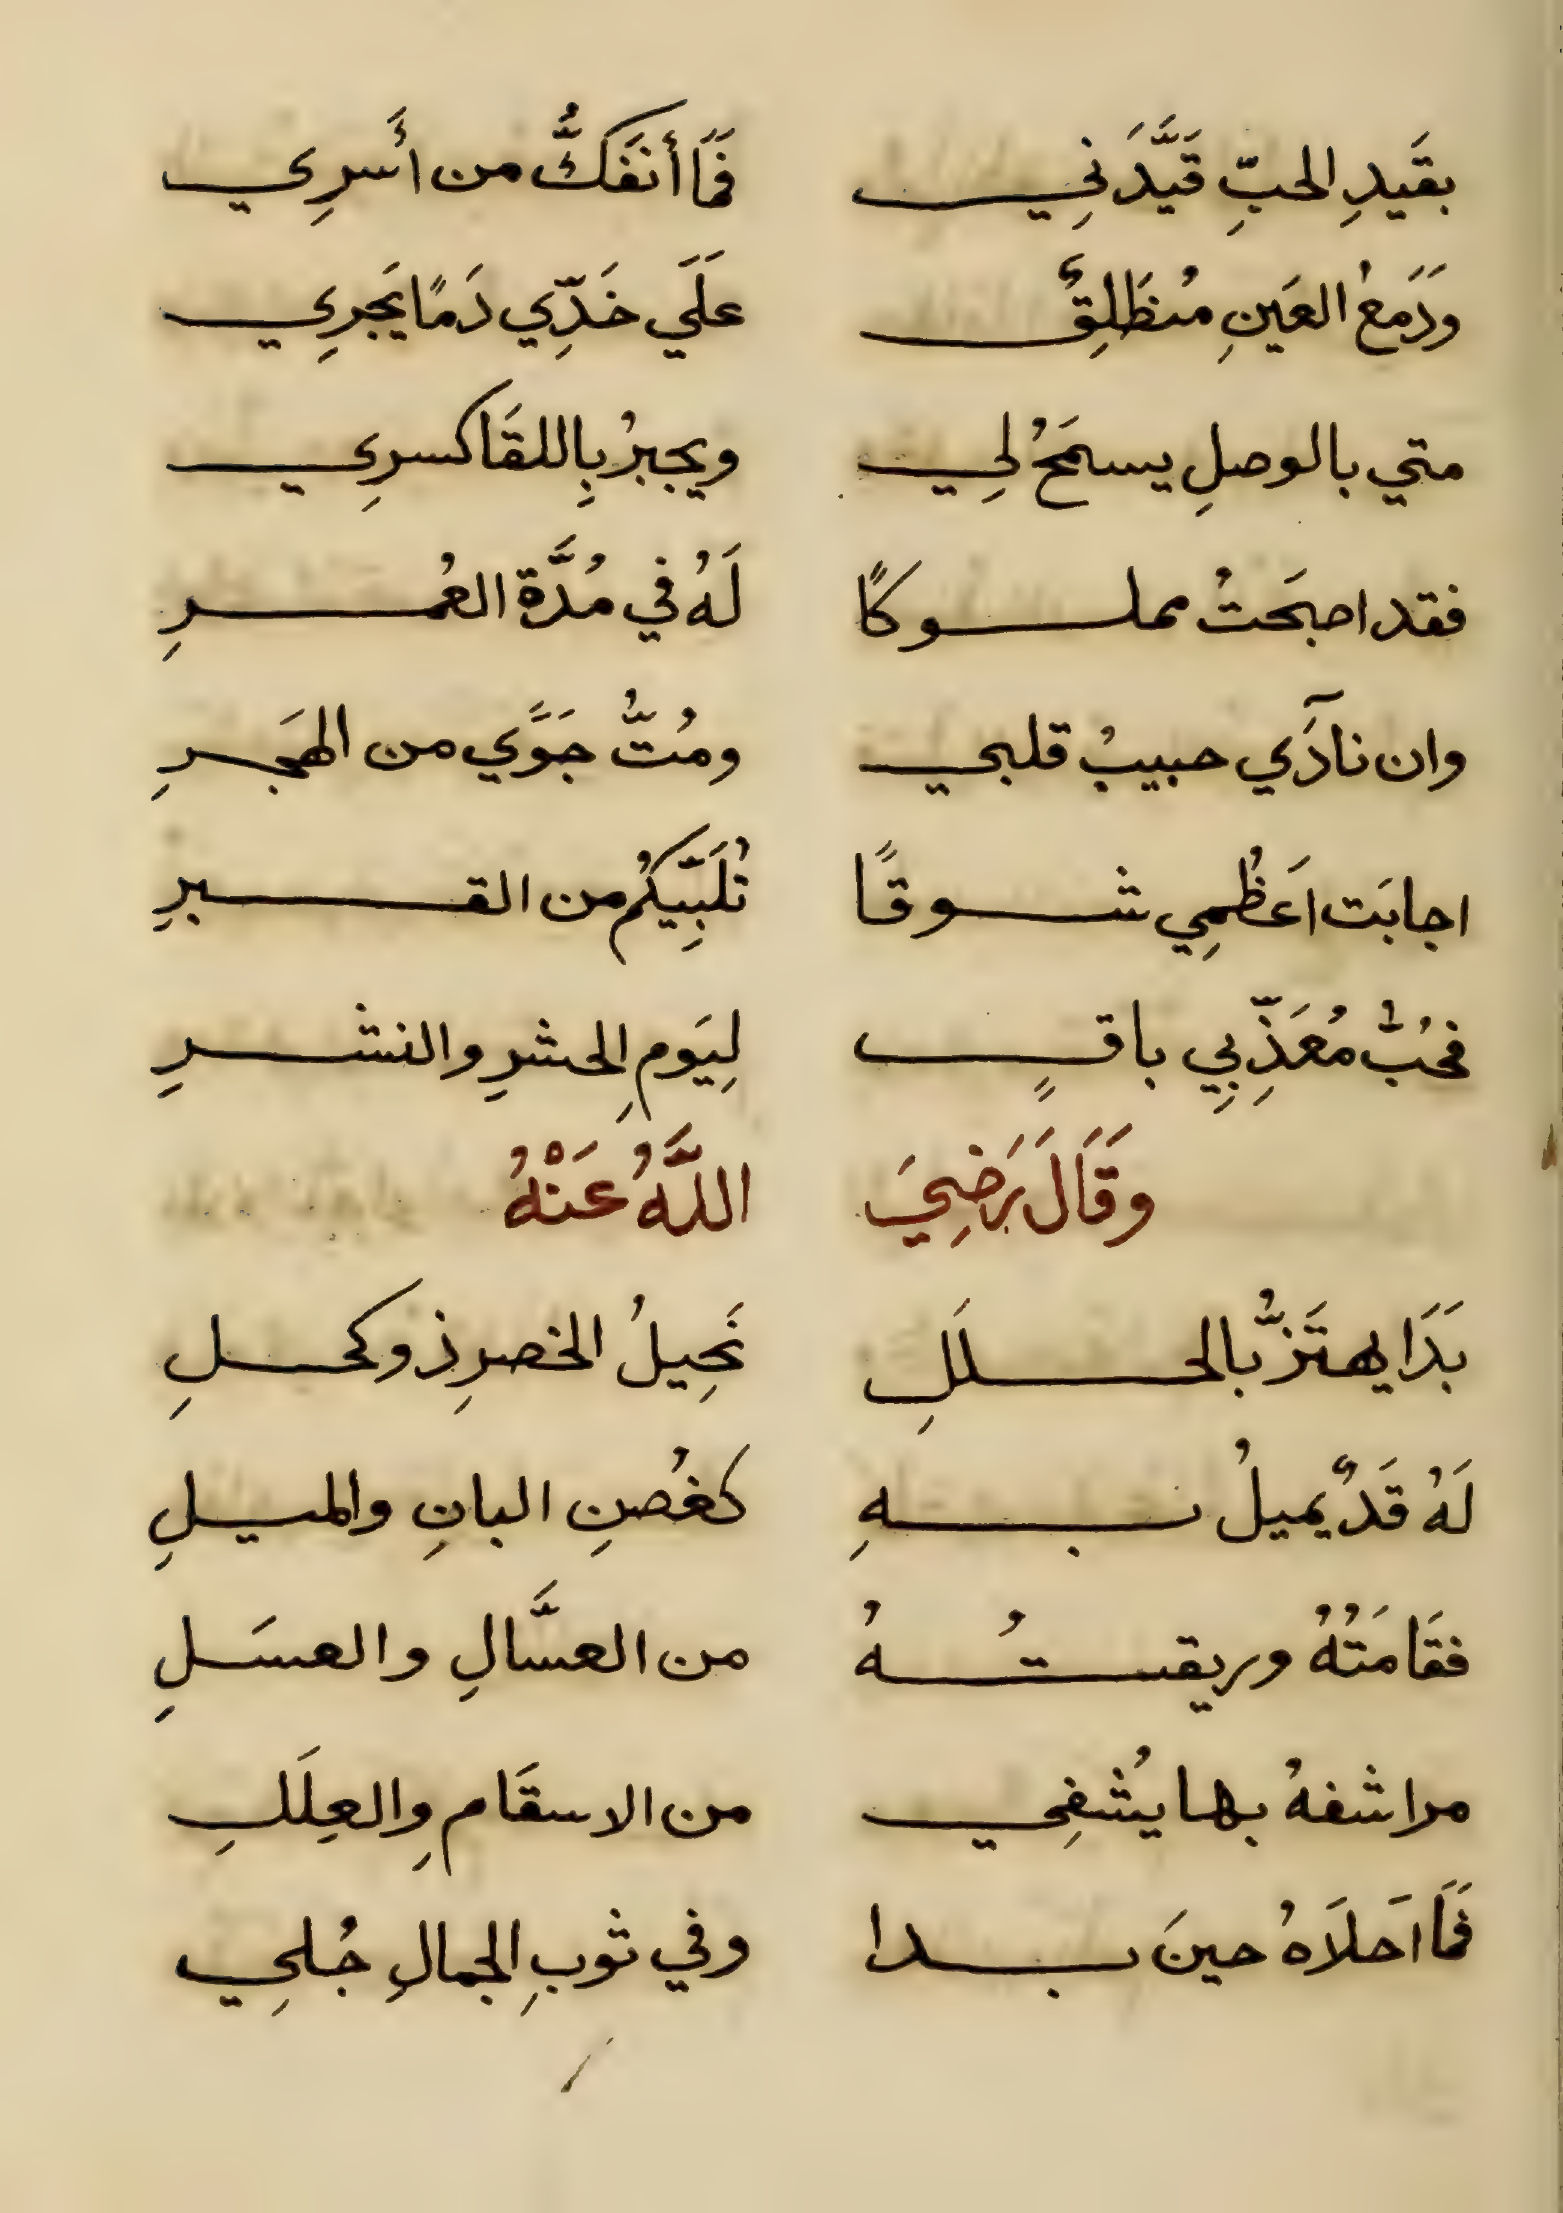 بقَيدِ الحبِّ قَيَّدَنِي فَمَا أنفَكُّ من أَسرِي
ودَمعُ العَينِ مُنطَلِقٌ عَلَي خَدِّي دَمًا يَجرِي
متي بالوصلِ يسمَحُ لِي ويجبرُ بِاللقَا كسرِي
فقد اصبَحتُ مملوكًا لَهُ في مُدَّة العُمرِ
وان نادَي حبيبُ قلبي ومُتُّ جَوًي من الهَجرِ
اجابَت اَعظُمِي شوقًا تُلَبِّيكُم من القبرِ
فحُبُّ مُعَذِّبِي باقٍ لِيَومِ الحشرِ والنشرِ
وَقَالَ رَضِيَ اللَّهُ عَنْهُ
بَدَا يهتَزُّ بالحلَلِ نَحِيلُ الخصرِ ذو كحلِ
لَهُ قَدٌّ يميلُ بهِ كغُصنِ البانِ والميلِ
فقَامَتُهُ وريقتُهُ من العسَّالِ والعسَلِ
مراشفهُ بها يُشفِي من الاسقَامِ والعِلَلِ
فَمَا اَحلَاهُ حينَ بدا وفي ثوبِ الجمالِ جُلِي